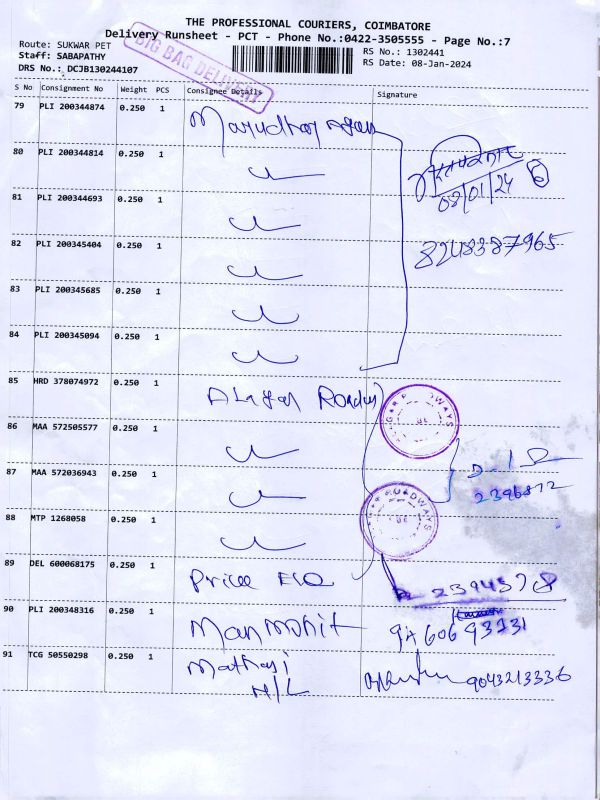 THE PROFESSIONAL COURIERS, COIMBATORE
Delivery Runsheet - PCT - Phone No.:0422-3505555 - Page No.:7
Route: SUKWAR PET
RS No.: 1302441
Staff: SABAPATHY
RS Date: 08-Jan-2024
DRS No.: DCJB130244107
BIG BAG DELIVERY
S No Consignment No Weight PCS Consignee Details Signature
79 PLI 200344874 0.250 1
80 PLI 200344814 0.250 1
08/01/24
81 PLI 200344693 0.250 1
82 PLI 200345404 0.250 1
8248387965
83 PLI 200345685 0.250 1
84 PLI 200345094 0.250 1
85 HRD 378074972 0.250 1
86 MAA 572505577 0.250 1
87 MAA 572036943 0.250 1
2396872
88 MTP 1268058 0.250 1
ROADWAYS
89 DEL 600068175 0.250 1
2394578
90 PLI 200348316 0.250 1 Manmohit
91 TCG 50550298 0.250 1 Mathaji 9043213336
H/L